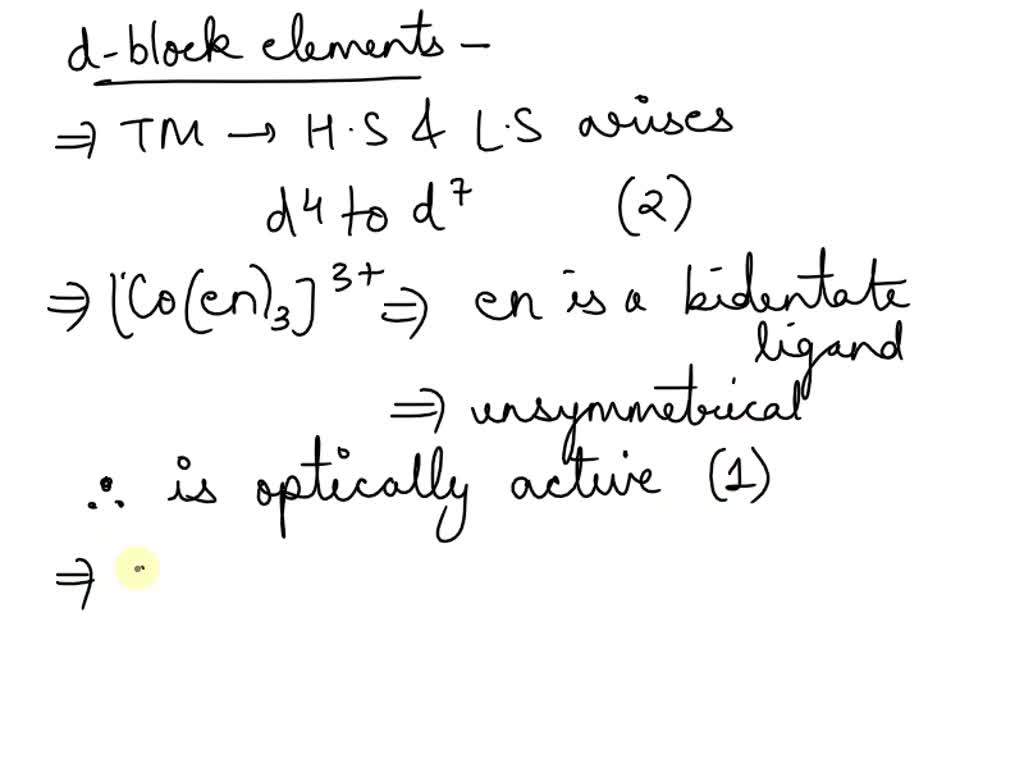 d-block elements –
⇒ TM → H.S & L.S arises
d⁴ to d⁷ (2)
⇒ [Co(en)₃]³⁺ ⇒ en is a bidentate
ligand
⇒ unsymmetrical
∴ is optically active (1)
⇒